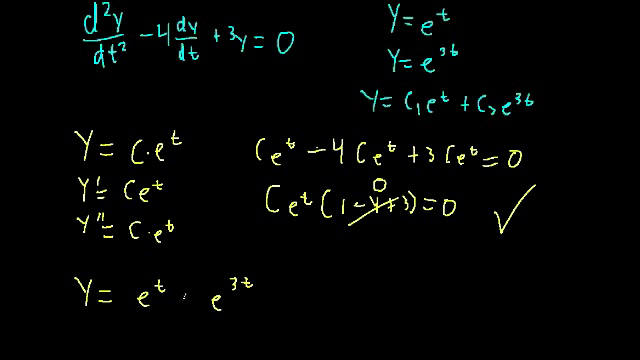 d²y/dt² - 4 dy/dt + 3y = 0
y = e^t
y = e^{3t}
y = c₁e^t + c₂e^{3t}
y = c · e^t
y' = ce^t
y'' = c · e^t
ce^t - 4ce^t + 3ce^t = 0
ce^t (1 - 4 + 3) = 0 ✓
0
y = e^t · e^{3t}